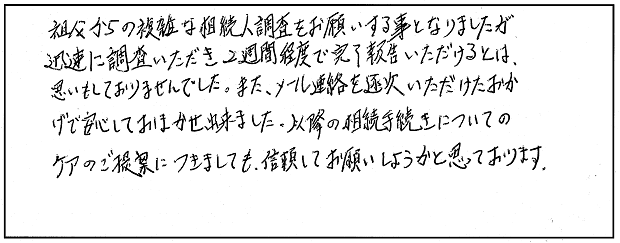 祖父からの複雑な相続人調査をお願いする事となりましたが
迅速に調査いただき2週間程度で完了報告いただけるとは、
思いもしておりませんでした。また、メール連絡を逐次いただけたおか
げで安心しておまかせ出来ました。以降の相続手続きについての
ケアのご提案につきましても、信頼してお願いしようかと思っております。